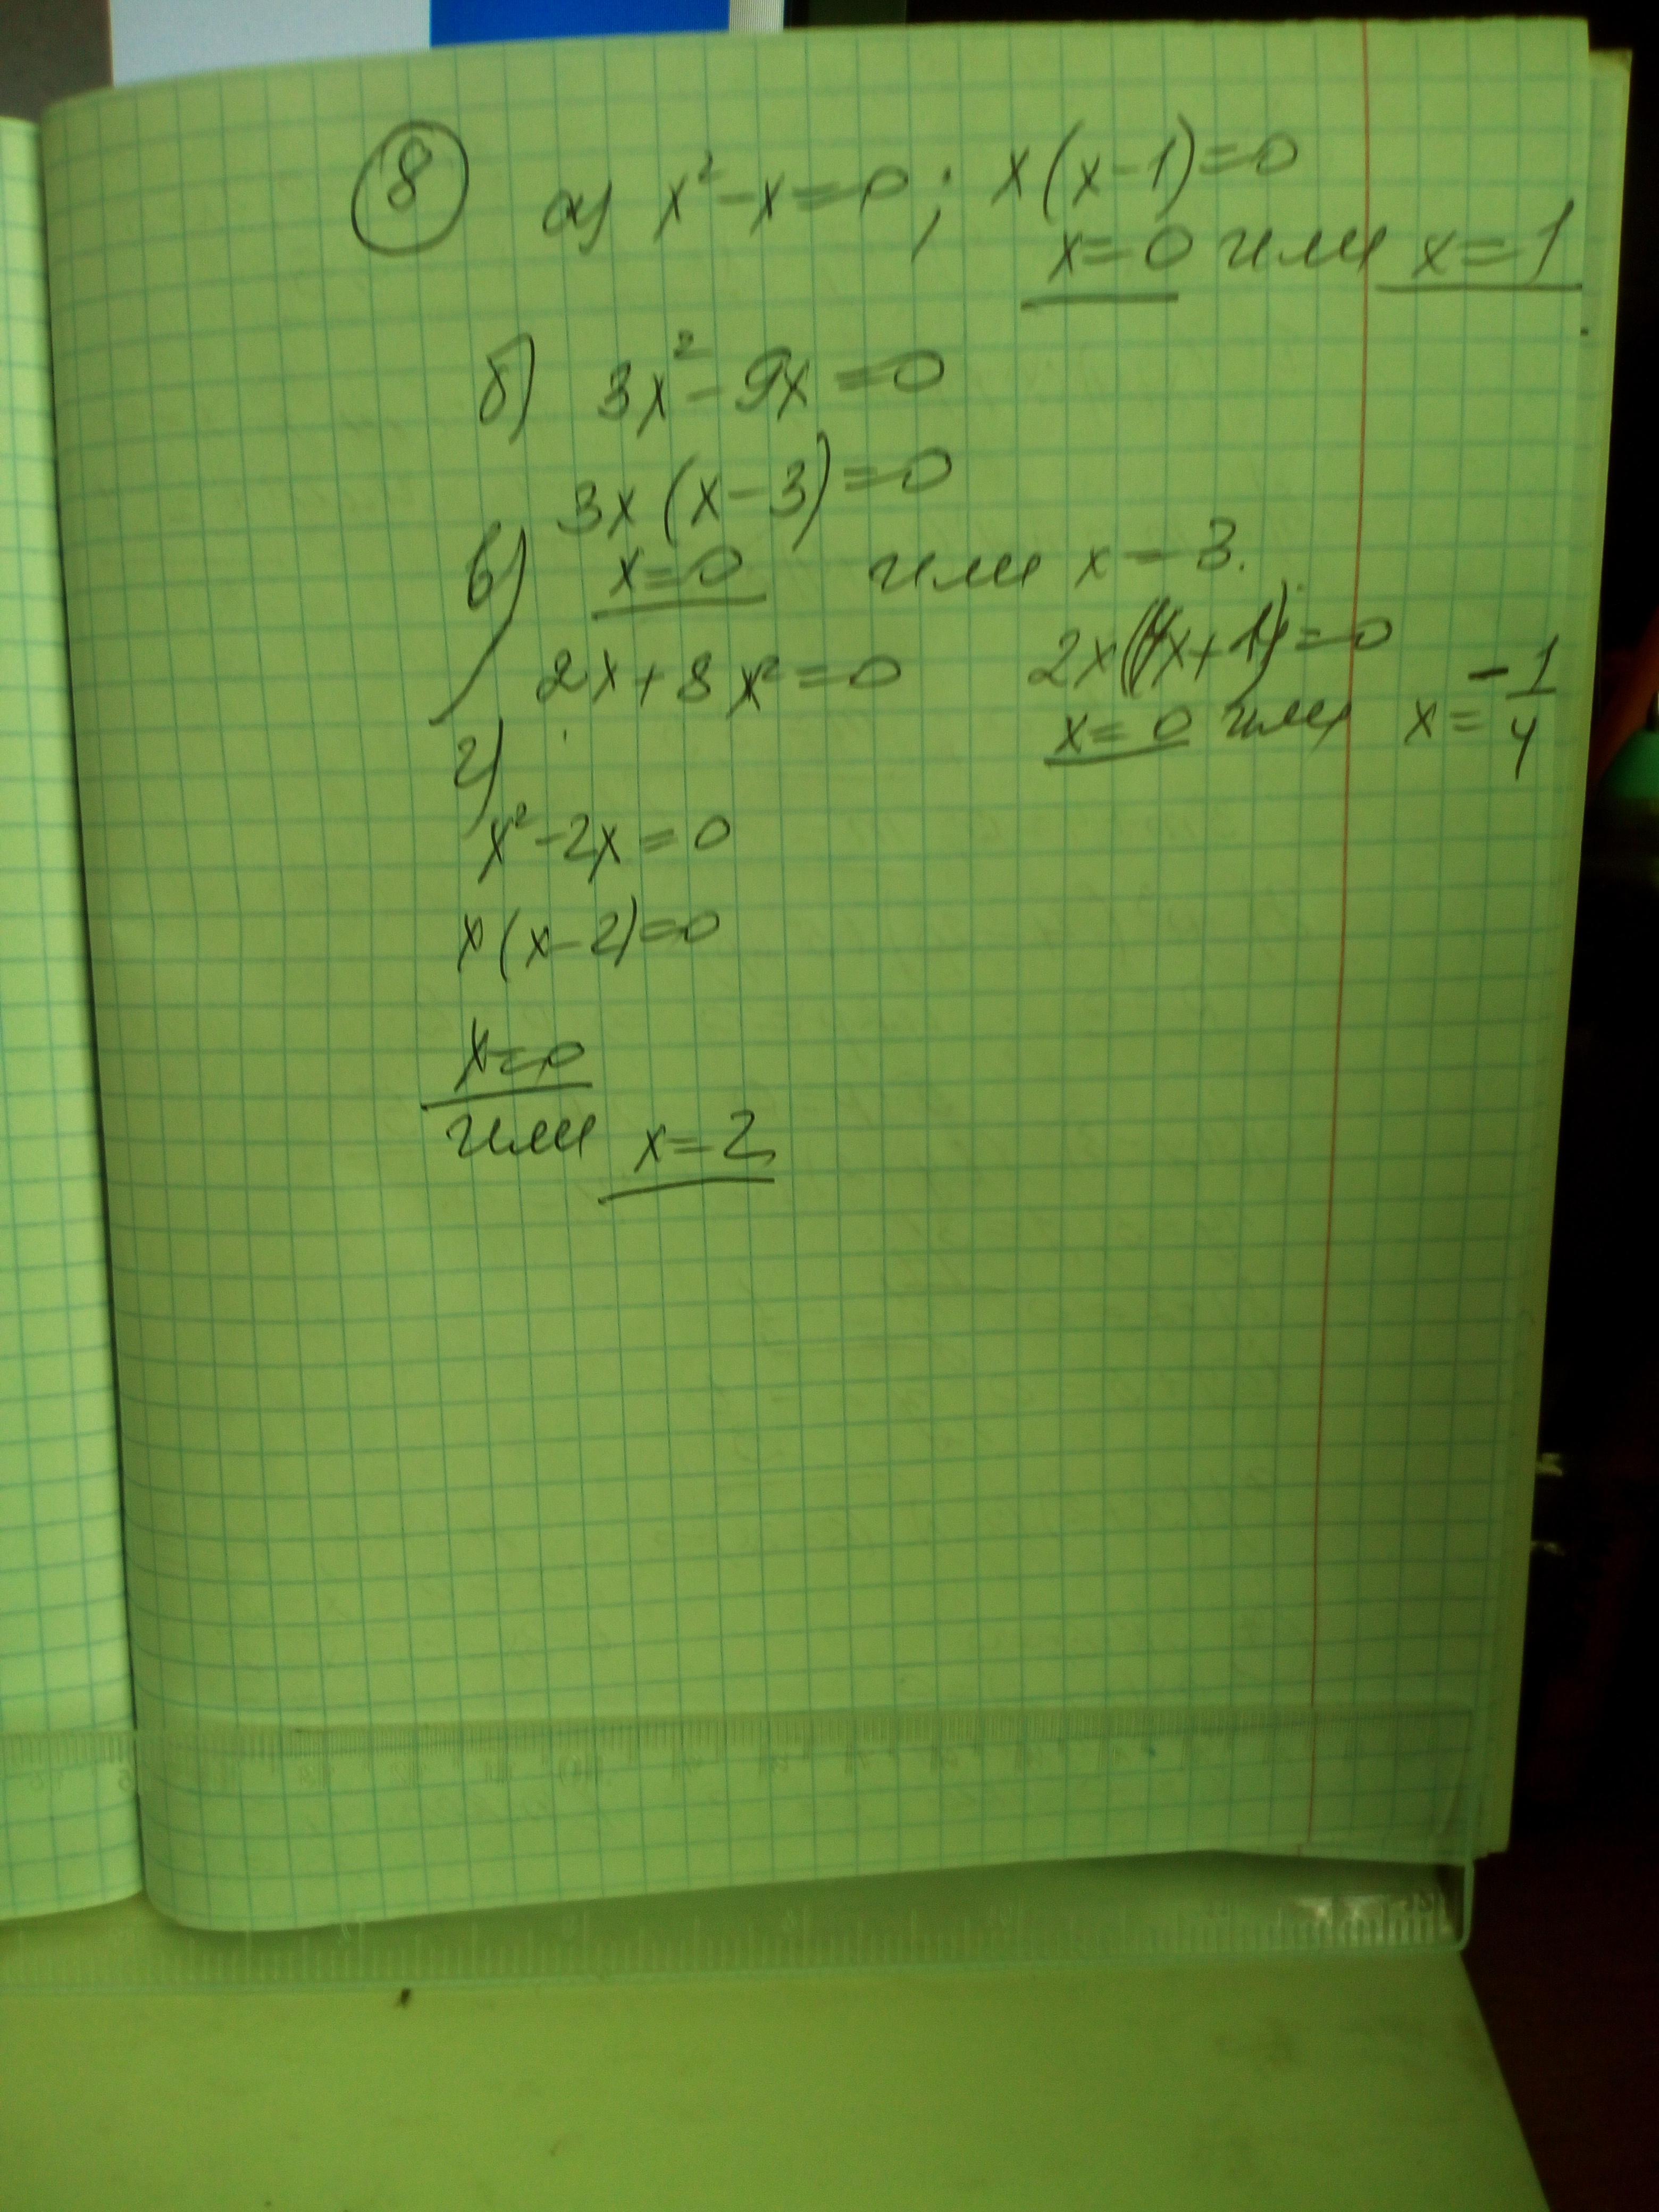 8 а) x² - x = 0; x(x-1)=0
x=0 или x=1
б) 3x² - 9x = 0
3x(x-3)=0
в) x=0 или x = 3.
2x+8x²=0 2x(4x+1)=0
г) x=0 или x = -1/4
x²-2x=0
x(x-2)=0
x=0
или x=2